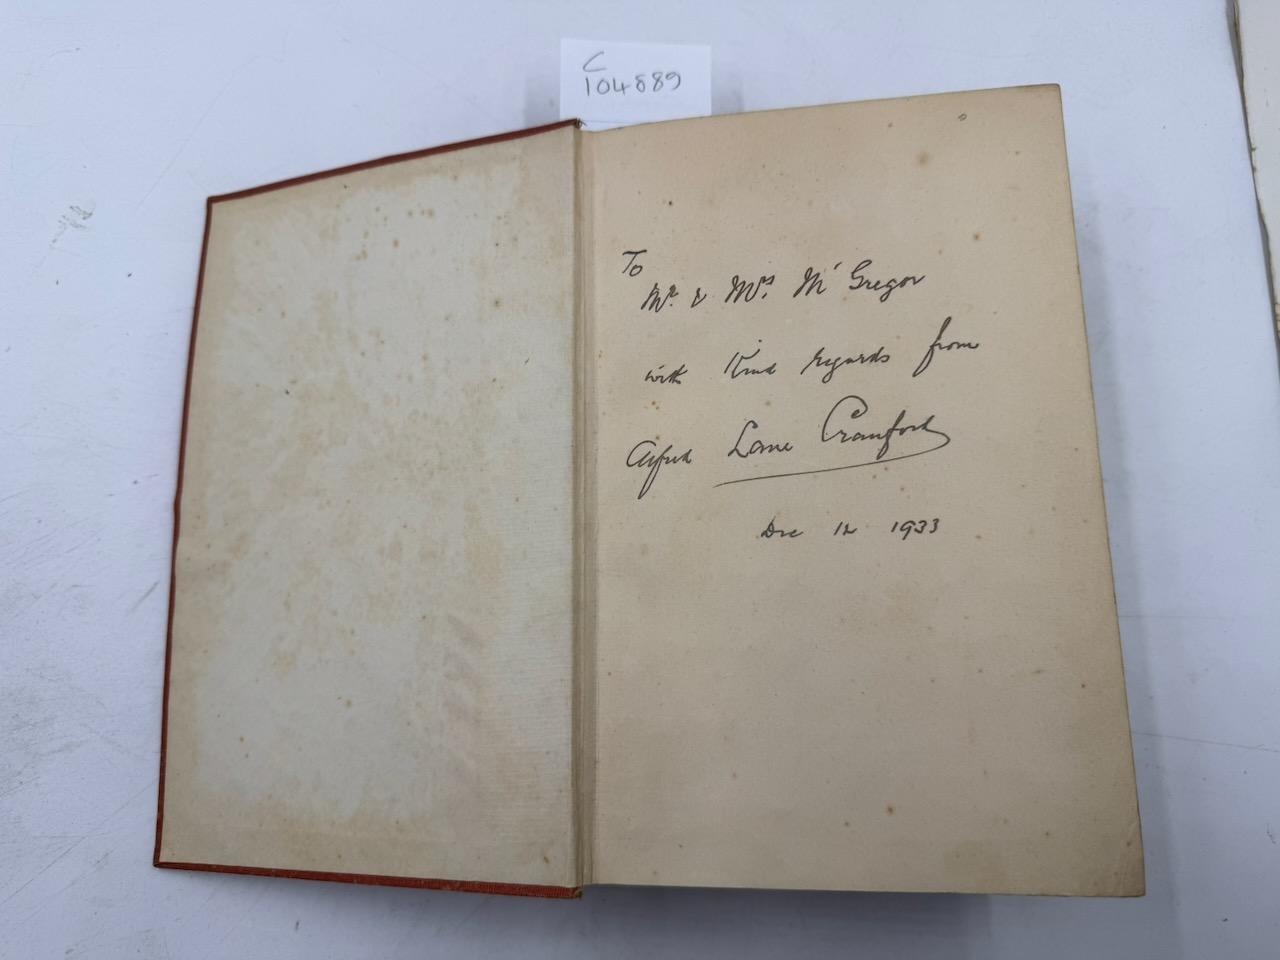 C
104889
To
Mr. & Mrs. Mc Gregor
with Kind regards from
Alfred Lane Crauford
Dec 12 1933